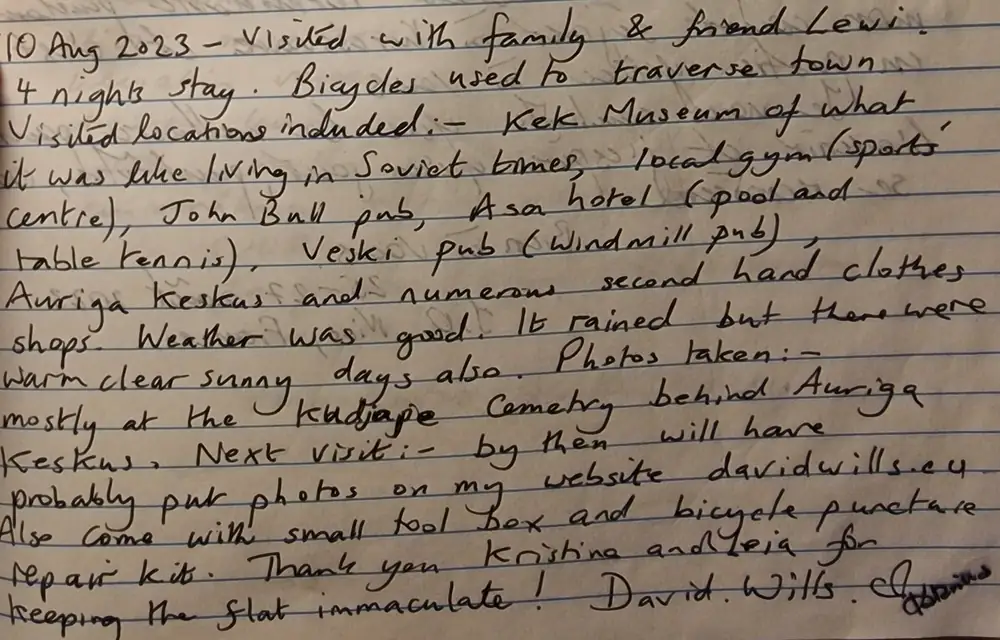 10 Aug 2023 - Visited with family & friend Lewi.
4 nights stay. Bicycles used to traverse town.
Visited locations included:- Kek Museum of what
it was like living in Soviet times, local gym (sports
centre), John Bull pub, Asa hotel (pool and
table tennis), Veski pub (windmill pub),
Auriga Keskus and numerous second hand clothes
shops. Weather was good. It rained but there were
warm clear sunny days also. Photos taken:-
mostly at the Kudjape Cemetry behind Auriga
Keskus. Next visit:- by then will have
probably put photos on my website davidwills.eu
Also come with small tool box and bicycle puncture
repair kit. Thank you Kristina and Leia for
keeping the flat immaculate! David. Wills.